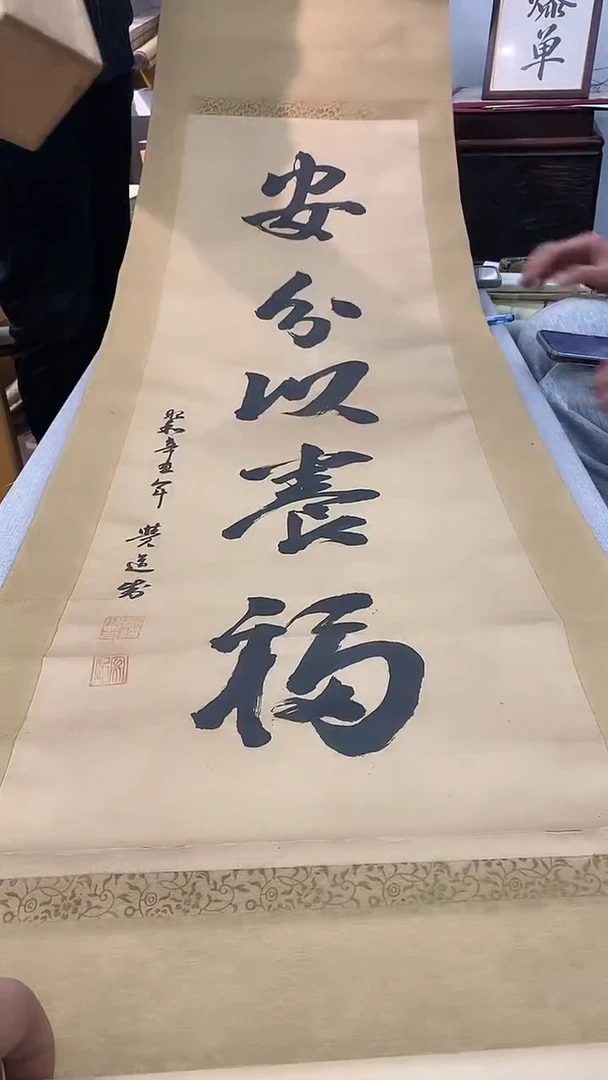 安分以養福
昭和辛丑年
单